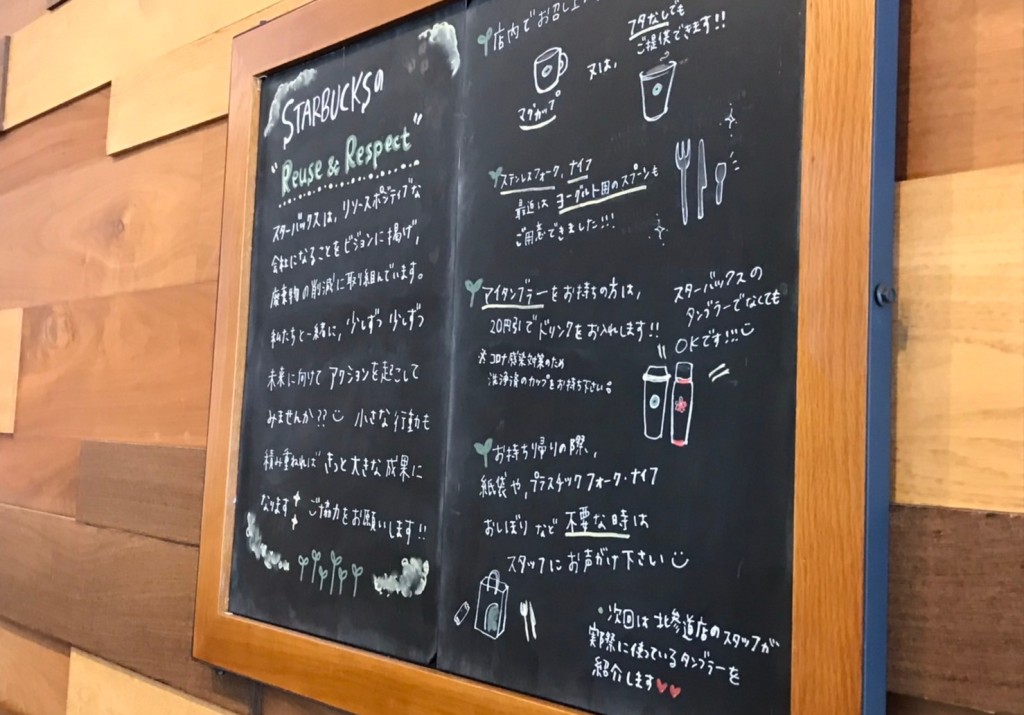 STARBUCKSの
"Reuse & Respect"
スターバックスは、リソースポジティブな
会社になることをビジョンに掲げ、
廃棄物の削減に取り組んでいます。
私たちと一緒に、少しずつ 少しずつ
未来に向けて アクションを起こして
みませんか??
小さな行動も
積み重ねれば きっと大きな成果に
なります
ご協力をお願いします!!
店内でお召し上
マグカップ
又は、
フタなしでも
ご提供できます!!
ステンレスフォーク、ナイフ
最近は ヨーグルト用のスプーンも
ご用意できました!!!
マイタンブラーをお持ちの方は、
20円引でドリンクをお入れします!!
※コロナ感染対策のため
洗浄済のカップをお持ち下さい。
スターバックスの
タンブラーでなくても
OKです!!!
お持ち帰りの際、
紙袋や、プラスチックフォーク・ナイフ
おしぼりなど 不要な時は
スタッフにお声がけ下さい
・次回は 北参道店のスタッフが
実際に使っているタンブラーを
紹介します♥♥